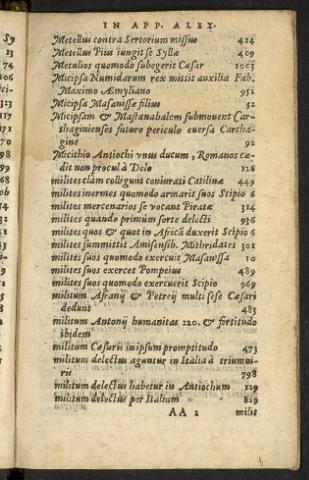 IN APP. ALEX.
Metellus contra Sertorium missus 424
Metellus Pius iungit se Syllæ 409
Metulios quomodo subegerit Cæsar 1003
Micipsa Numidarum rex mittit auxilia Fab.
Maximo Æmyliano 951
Micipsa Masanissæ filius 52
Micipsam & Mastanabalem submouent Car-
thaginienses futuro periculo euersa Cartha
gine 92
Micithio Antiochi vnus ducum, Romanos cæ-
dit non procul à Delo 126
milites clam colligunt coniurati Catilinæ 449
milites inermes quomodo armarit suos Scipio 6
milites mercenarios se vocant Piratæ 314
milites quando primùm sorte delecti 936
milites quos & quot in Africã duxerit Scipio 6
milites summittit Amisensib. Mithridates 301
milites suos quomodo exercuit Masanissa 10
milites suos exercet Pompeius 489
milites suos quomodo exercuerit Scipio 969
militum Afranij & Petreij multi sese Cæsari
dedunt 483
militum Antonij humanitas 220. & fortitudo
ibidem
militum Cæsaris in ipsum promptitudo 473
militum delectus aguntur in Italia à triumui-
ris 798
militum delectus habetur in Antiochum 129
militum delectus per Italiam 819
AA 2 milit
59
13
74
005
ci-
323
117
171
70
98
99
68